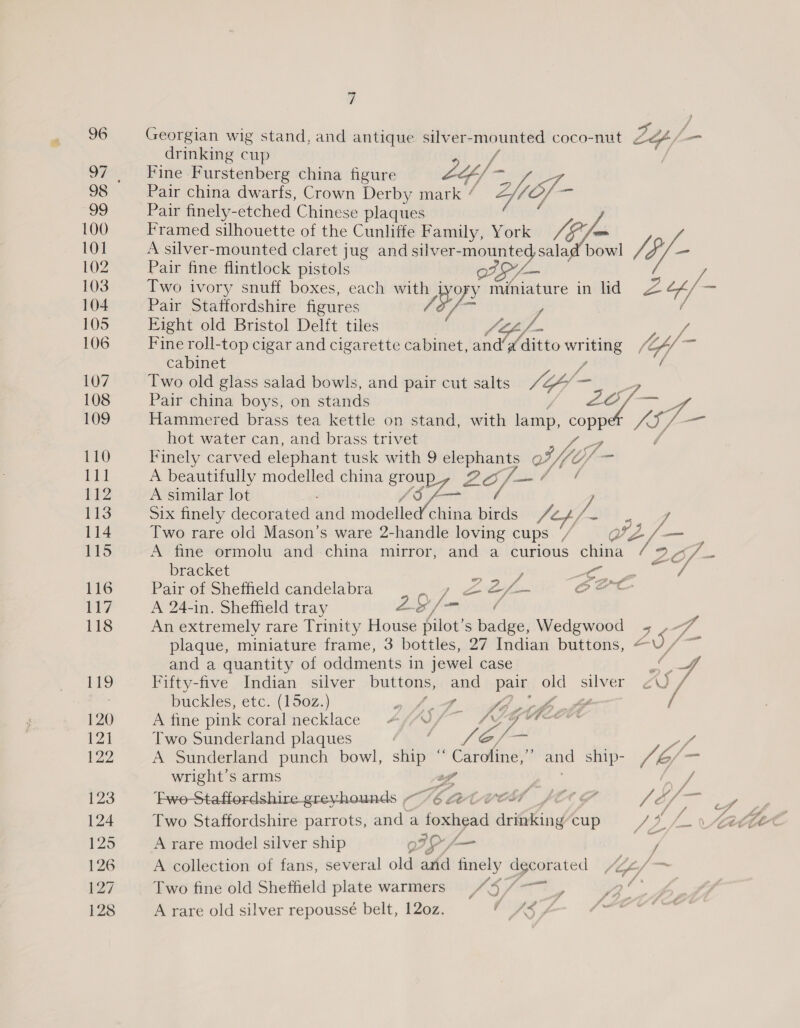 7
96 Georgian wig stand, and antique silver-mounted coco-nut
drinking cup
97 Fine Furstenberg china figure
98 Pair china dwarfs, Crown Derby mark
99 Pair finely-etched Chinese plaques
100 Framed silhouette of the Cunliffe Family, York
101 A silver-mounted claret jug and silver-mounted salad bowl
102 Pair fine flintlock pistols
103 Two ivory snuff boxes, each with ivory miniature in lid
104 Pair Staffordshire figures
105 Eight old Bristol Delft tiles
106 Fine roll-top cigar and cigarette cabinet, and a ditto writing
cabinet
107 Two old glass salad bowls, and pair cut salts
108 Pair china boys, on stands
109 Hammered brass tea kettle on stand, with lamp, copper
hot water can, and brass trivet
110 Finely carved elephant tusk with 9 elephants
111 A beautifully modelled china group
112 A similar lot
113 Six finely decorated and modelled china birds
114 Two rare old Mason's ware 2-handle loving cups
115 A fine ormolu and china mirror, and a curious china
bracket
116 Pair of Sheffield candelabra
117 A 24-in. Sheffield tray
118 An extremely rare Trinity House pilot's badge, Wedgwood
plaque, miniature frame, 3 bottles, 27 Indian buttons,
and a quantity of oddments in jewel case
119 Fifty-five Indian silver buttons, and pair old silver
buckles, etc. (15oz.)
120 A fine pink coral necklace
121 Two Sunderland plaques
122 A Sunderland punch bowl, ship “Caroline,” and ship-
wright's arms
123 Two Staffordshire greyhounds
124 Two Staffordshire parrots, and a foxhead drinking cup
125 A rare model silver ship
126 A collection of fans, several old and finely decorated
127 Two fine old Sheffield plate warmers
128 A rare old silver repoussé belt, 12oz.